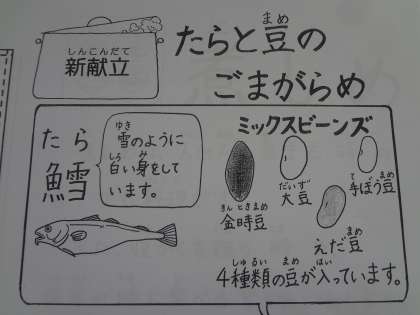 しんこんだて
新献立
たらと豆の
まめ
ごまがらめ
たら
鱈
ゆき
雪のように
しろ み
白い身をして
います。
ミックスビーンズ
きんときまめ
金時豆
だいず
大豆
て まめ
手ぼう豆
まめ
えだ豆
しゅるい まめ はい
4種類の豆が入っています。